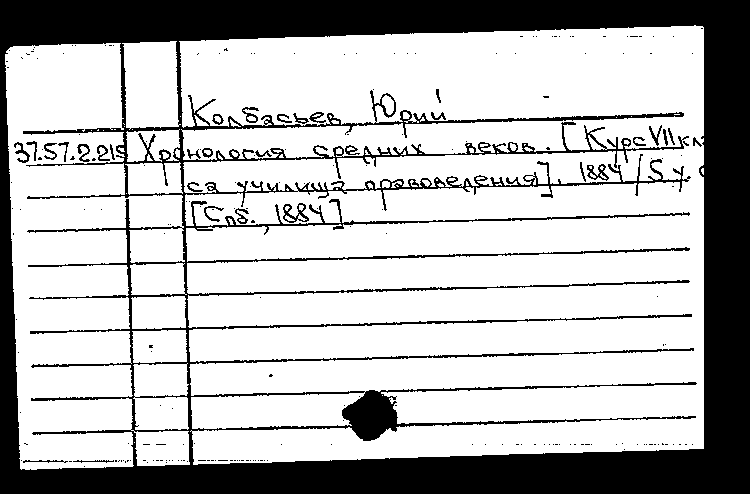 Колбасьев, Юрий
37.57.2.215 Хронология средних веков. [Курс VII клас
са училища правоведения]. 1884/5 у.
[Спб., 1884].